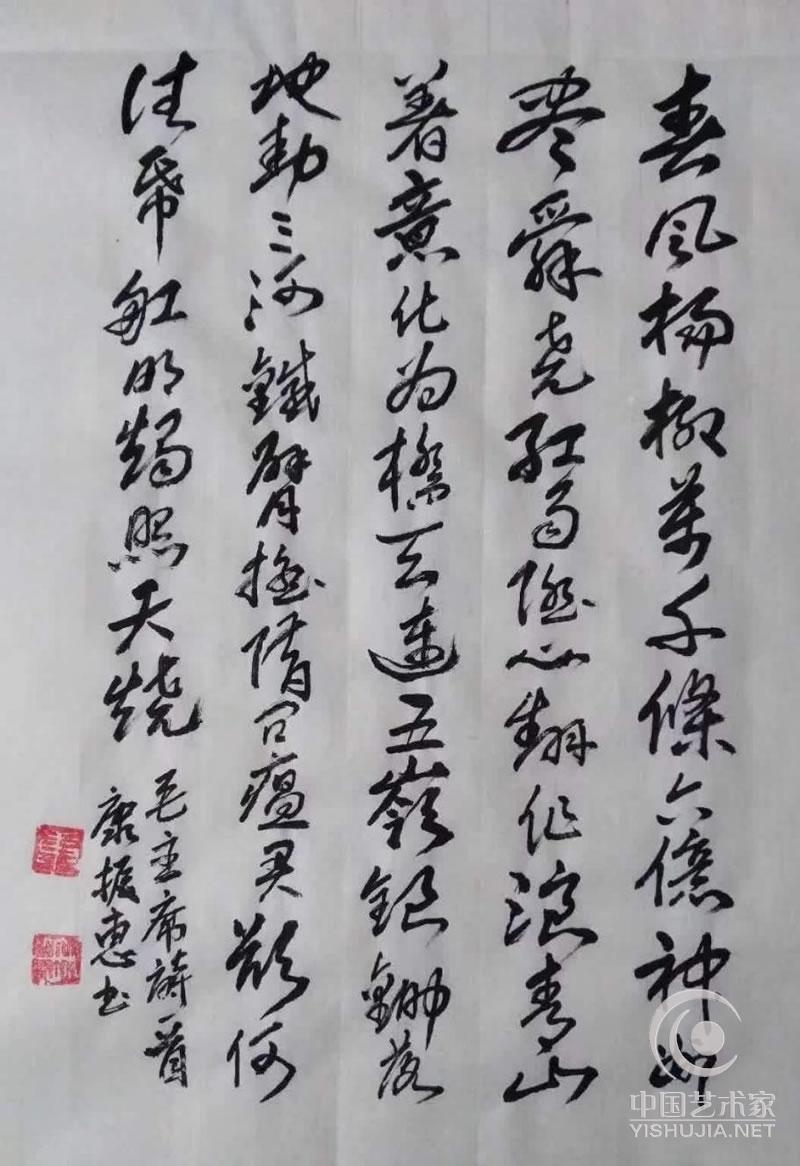 春风杨柳萬千條六億神州
尽舜尧红雨随心翻作浪青山
着意化为橋天連五嶺銀鋤落
地動三河鐵臂摇借问瘟君欲何
往帋船明燭照天烧
毛主席詩一首
康振惠书
中国艺术家
YISHUJIA.NET